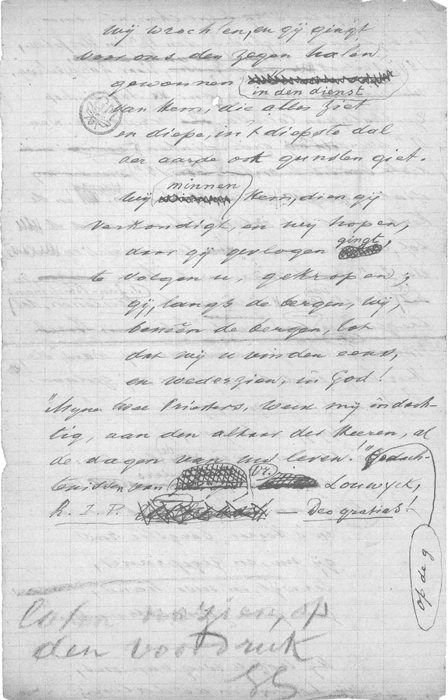 Wij wrochten, en gij gingt
voor ons den zegen halen
gewonnen in den dienst
van Hem, die alles ziet
en diepe, in 't diepste dal
der aarde ook gunsten giet.
Wij minnen Hem, dien gij
verkondigt, en wij hopen,
daar gij gevlogen gingt,
te volgen u, gekropen;
gij, langs de bergen, wij,
beneên de bergen, tot
dat wij u vinden eens,
en wederzien, in God!
"Mijne Priesters, weest mij indach-
tig, aan den altaar des Heeren, al
de dagen van uw leven!" Gedach-
tenisse van Vr. Louwyck,
R. I. P. — Deo gratias!
op de 9
laten nazien, op
den voordruk
GG